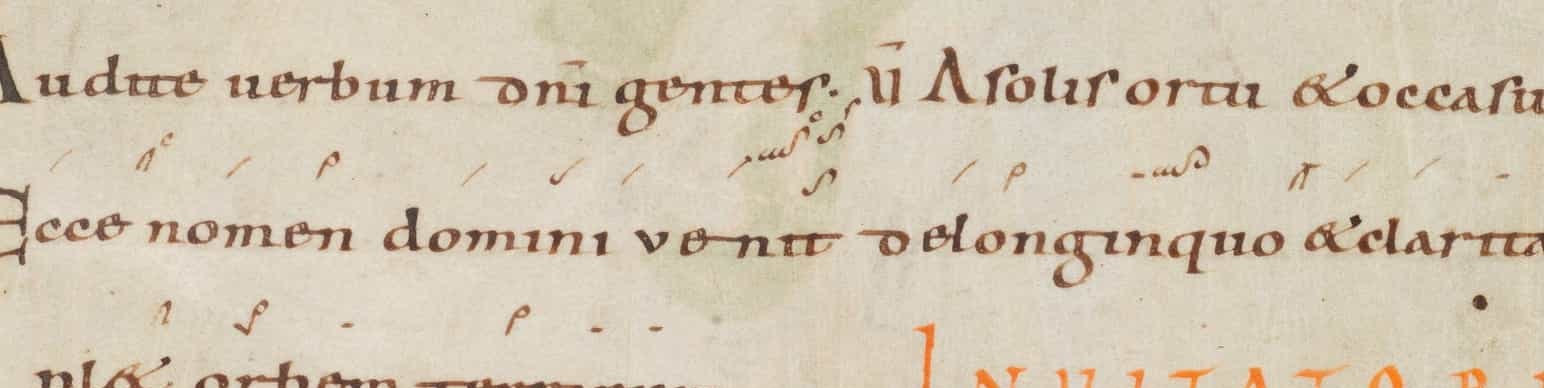 Audite uerbum dnī gentes. V̄ Asolis ortu &occasu
Ecce nomen domini venit delonginquo &clarita
pl& orbem terrarum
INUITATOR